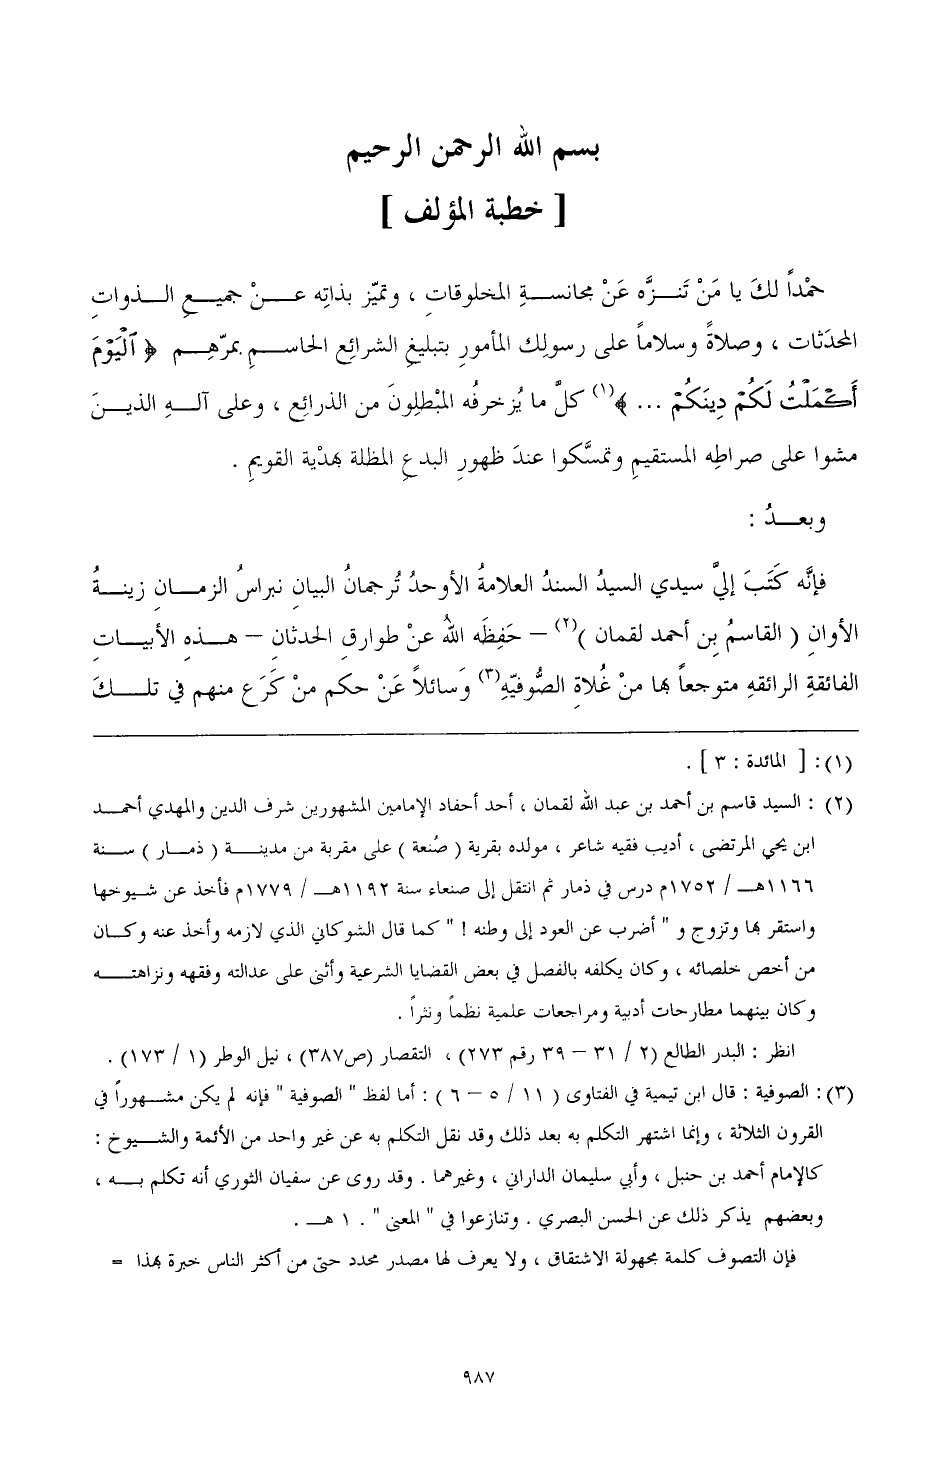 بسم الله الرحمن الرحيم
[ خطبة المؤلف ]
حمْداً لكَ يا مَنْ تَنـزَّه عَنْ مجانسـةِ المخلوقاتِ ، وتميّز بذاتِه عـنْ جميـعِ الـذواتِ
المحدَثاتِ ، وصلاةً وسلاماً على رسولِك المأمورِ بتبليغِ الشرائعِ الحاسـمِ بمرّهِـم ﴿ ٱلْيَوْمَ
أَكْمَلْتُ لَكُمْ دِينَكُمْ ... ﴾(١) كلَّ ما يُزخرفُه المبْطلِونَ من الذرائعِ ، وعلى آلـهِ الذيـنَ
مشوا على صراطِه المستقيمِ وتمسَّكوا عندَ ظهورِ البدعِ المظلة بهدْيهِ القويمِ .
وبعـدُ :
فإنَّه كَتَبَ إليَّ سيدي السيدُ السندُ العلامةُ الأوحدُ تُرجمانُ البيانِ نبراسُ الزمـانِ زينـةُ
الأوانِ ( القاسمُ بن أحمد لقمان )(٢) – حَفِظَه اللهُ عنْ طوارقِ الحدثانِ – هـذه الأبيـاتِ
الفائقةِ الرائقهِ متوجعاً بها منْ غُلاةِ الصُّوفيّهِ(٣) وَسائلاً عَنْ حكم منْ كَرَع منهم في تلـكَ
(١): [ المائدة : ٣ ] .
(٢) : السيد قاسم بن أحمد بن عبد الله لقمان ، أحد أحفاد الإمامين المشهورين شرف الدين والمهدي أحمـد
ابن يحي المرتضى ، أديب فقيه شاعر ، مولده بقرية ( صُنعة ) على مقربة من مدينـة ( ذمـار ) سـنة
١١٦٦هـ / ١٧٥٢م درس في ذمار ثم انتقل إلى صنعاء سنة ١١٩٢هـ / ١٧٧٩م فأخذ عن شيوخها
واستقر بها وتزوج و " أضرب عن العود إلى وطنه ! " كما قال الشوكاني الذي لازمه وأخذ عنه وكـان
من أخص خلصائه ، وكان يكلفه بالفصل في بعض القضايا الشرعية وأثنى على عدالته وفقهه ونزاهتـه
وكان بينهما مطارحات أدبية ومراجعات علمية نظماً ونثراً .
انظر : البدر الطالع (٢ / ٣١ – ٣٩ رقم ٢٧٣) ، التقصار (ص٣٨٧) ، نيل الوطر (١ / ١٧٣) .
(٣): الصوفية : قال ابن تيمية في الفتاوى ( ١١ / ٥ – ٦ ) : أما لفظ " الصوفية " فإنه لم يكن مشـهوراً في
القرون الثلاثة ، وإنما اشتهر التكلم به بعد ذلك وقد نقل التكلم به عن غير واحد من الأئمة والشـيوخ :
كالإمام أحمد بن حنبل ، وأبي سليمان الداراني ، وغيرهما . وقد روى عن سفيان الثوري أنه تكلم بـه ،
وبعضهم يذكر ذلك عن الحسن البصري . وتنازعوا في " المعنى " . ١ هـ .
فإن التصوف كلمة مجهولة الاشتقاق ، ولا يعرف لها مصدر محدد حتى من أكثر الناس خبرة بهذا =
٩٨٧